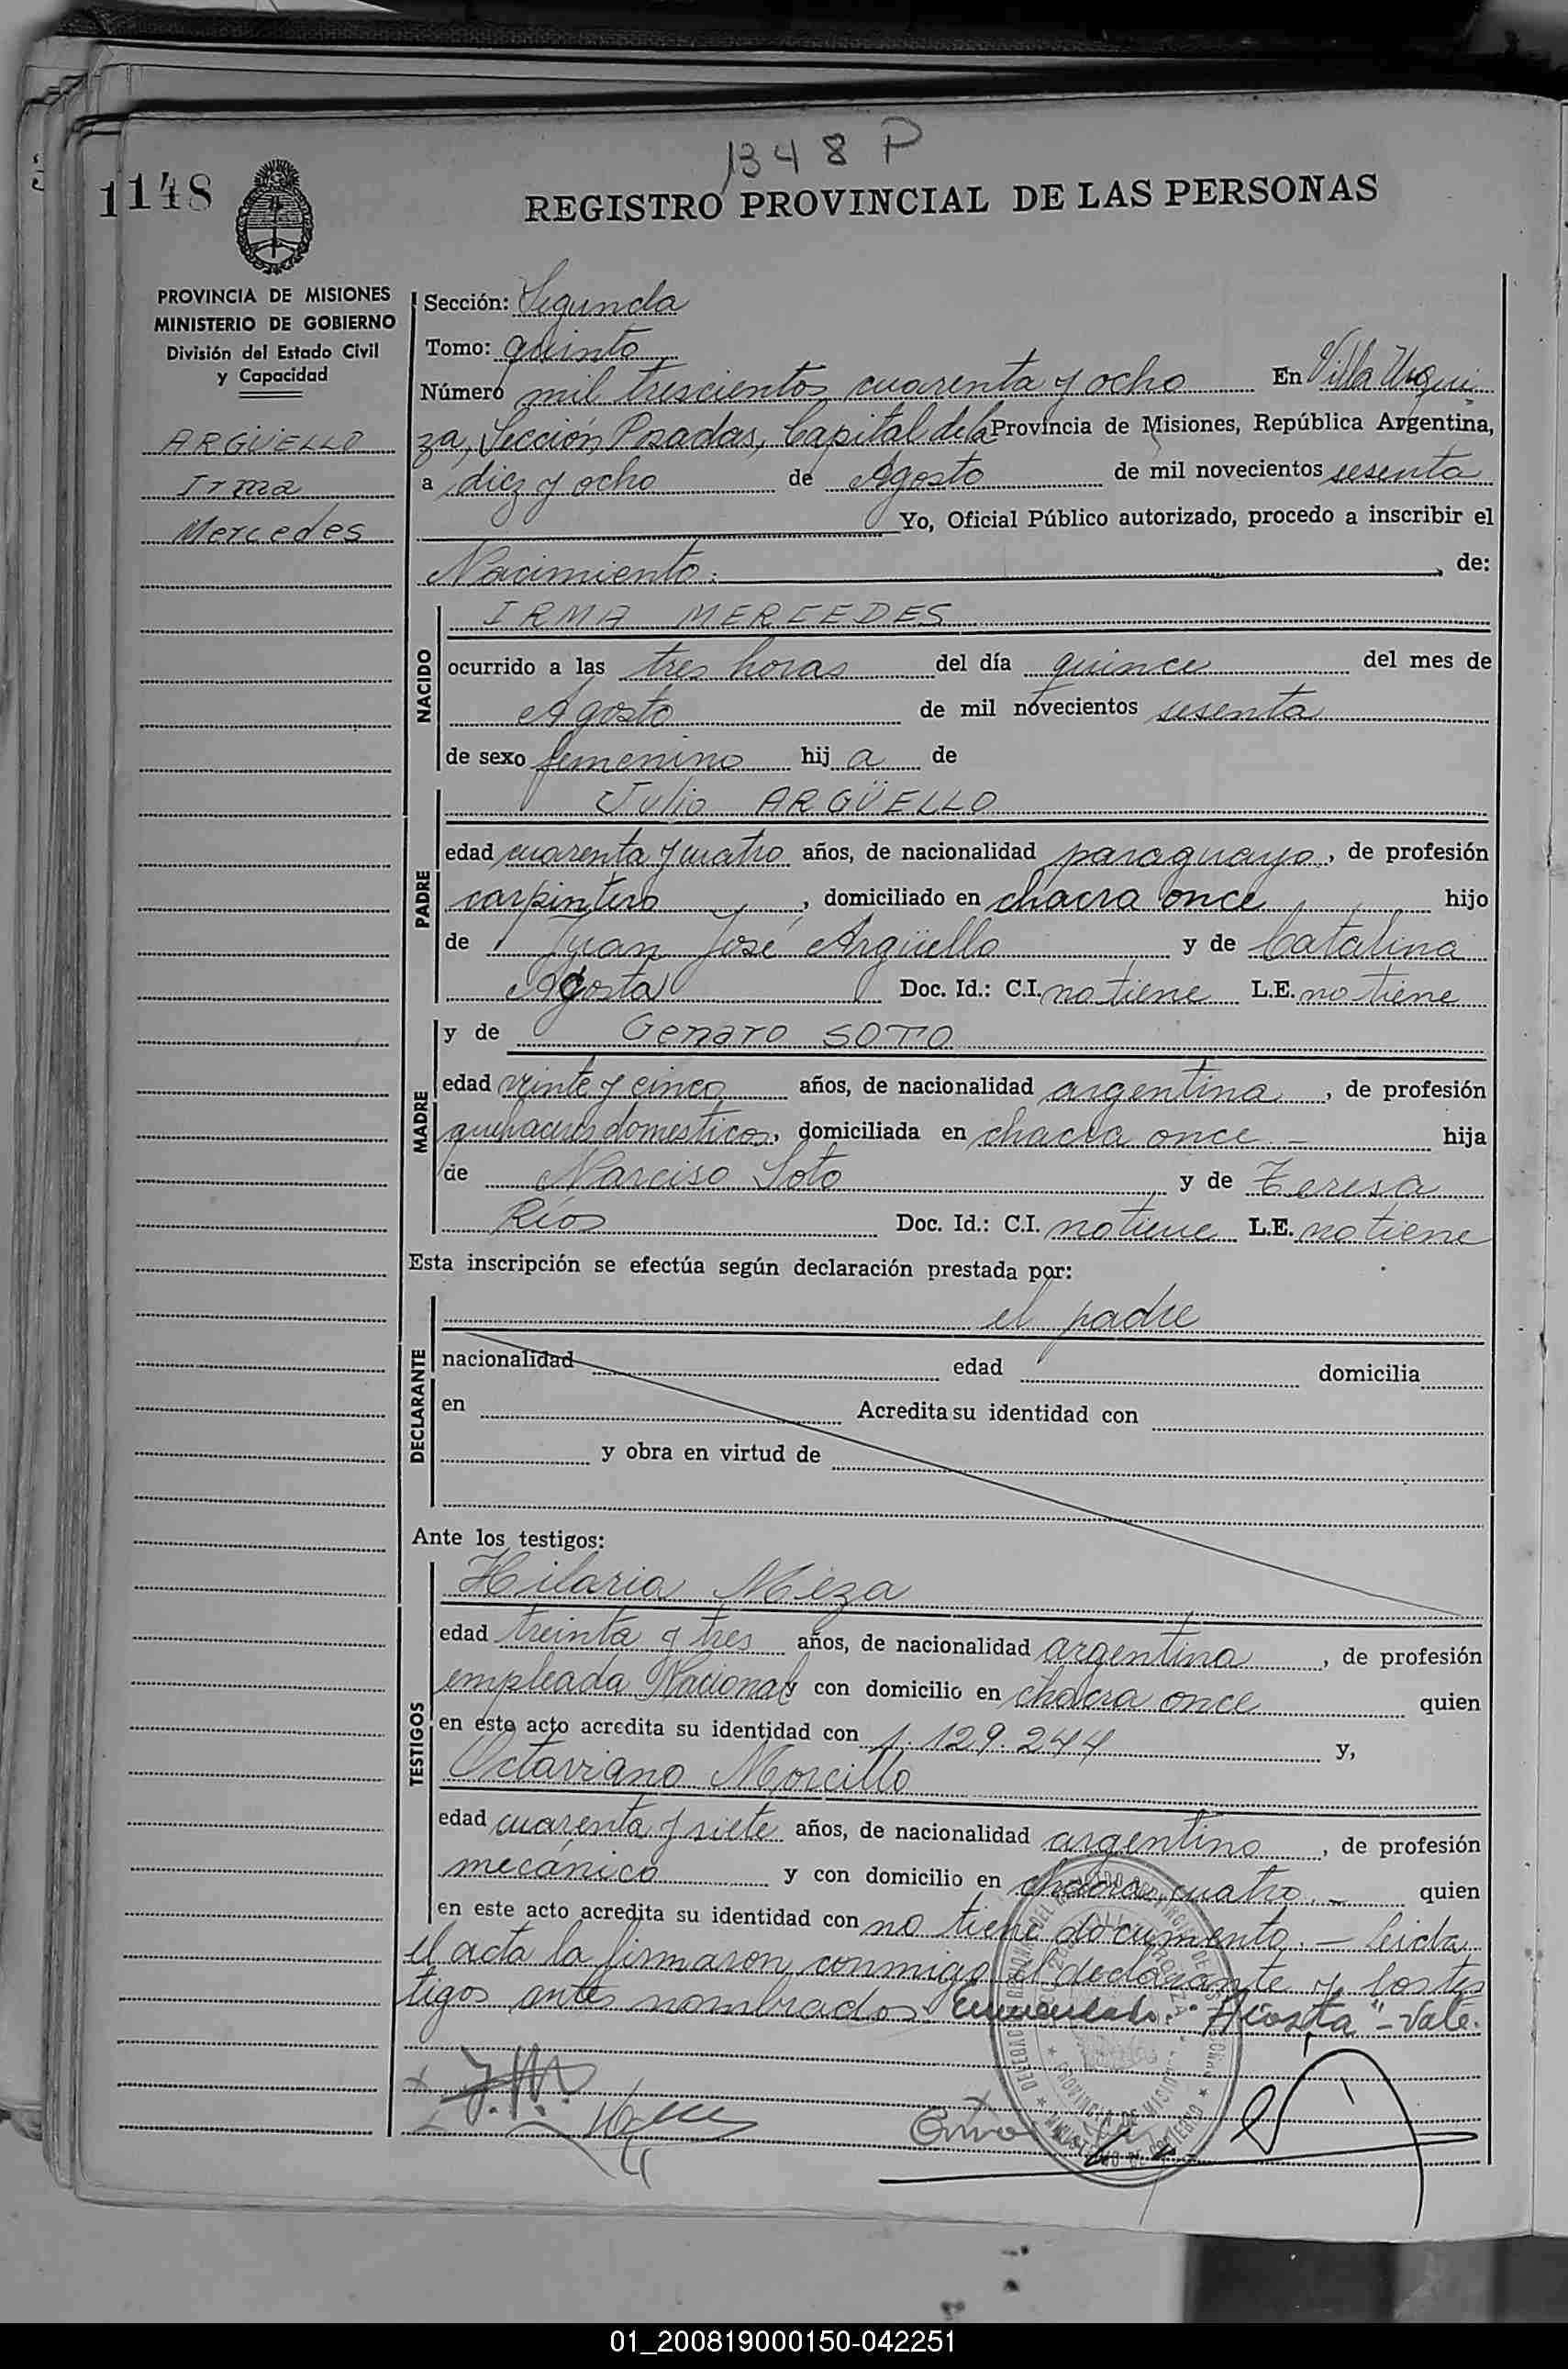 1348 P
1148
REGISTRO PROVINCIAL DE LAS PERSONAS
PROVINCIA DE MISIONES
MINISTERIO DE GOBIERNO
División del Estado Civil
y Capacidad
ARGÜELLO
Irma
Mercedes
Sección: Segunda
Tomo: quinto
Número mil trescientos cuarenta y ocho En Villa Urqui
za, Sección Posadas, Capital de la Provincia de Misiones, República Argentina,
a diez y ocho de Agosto de mil novecientos sesenta
Yo, Oficial Público autorizado, procedo a inscribir el
Nacimiento: , de:
NACIDO
IRMA MERCEDES
ocurrido a las tres horas del día quince del mes de
Agosto de mil novecientos sesenta
de sexo femenino hij a de
PADRE
Julio ARGÜELLO
edad cuarenta y cuatro años, de nacionalidad paraguayo, de profesión
carpintero, domiciliado en chacra once hijo
de Juan José Argüello y de Catalina
Acosta Doc. Id.: C.I. no tiene L.E. no tiene
MADRE
y de Genara SOTO
edad veinte y cinco años, de nacionalidad argentina, de profesión
quehaceres domesticos, domiciliada en chacra once - hija
de Narciso Soto y de Teresa
Ríos Doc. Id.: C.I. no tiene L.E. no tiene
Esta inscripción se efectúa según declaración prestada por:
DECLARANTE
el padre
nacionalidad edad domicilia
en Acredita su identidad con
y obra en virtud de
Ante los testigos:
TESTIGOS
Hilaria Meza
edad treinta y tres años, de nacionalidad argentina, de profesión
empleada Nacional y con domicilio en chacra once quien
en este acto acredita su identidad con 1.129.244 y,
Octaviano Morcillo
edad cuarenta y siete años, de nacionalidad argentino, de profesión
mecánico y con domicilio en chacra cuatro.- quien
en este acto acredita su identidad con no tiene documento.- Leida
el acta la firmaron conmigo el declarante y los tes
tigos antes nombrados. Enmendado: "Acosta"-Vale.
J.M.
PROVINCIA DE MISIONES
MINISTERIO DE GOBIERNO
01_200819000150-042251